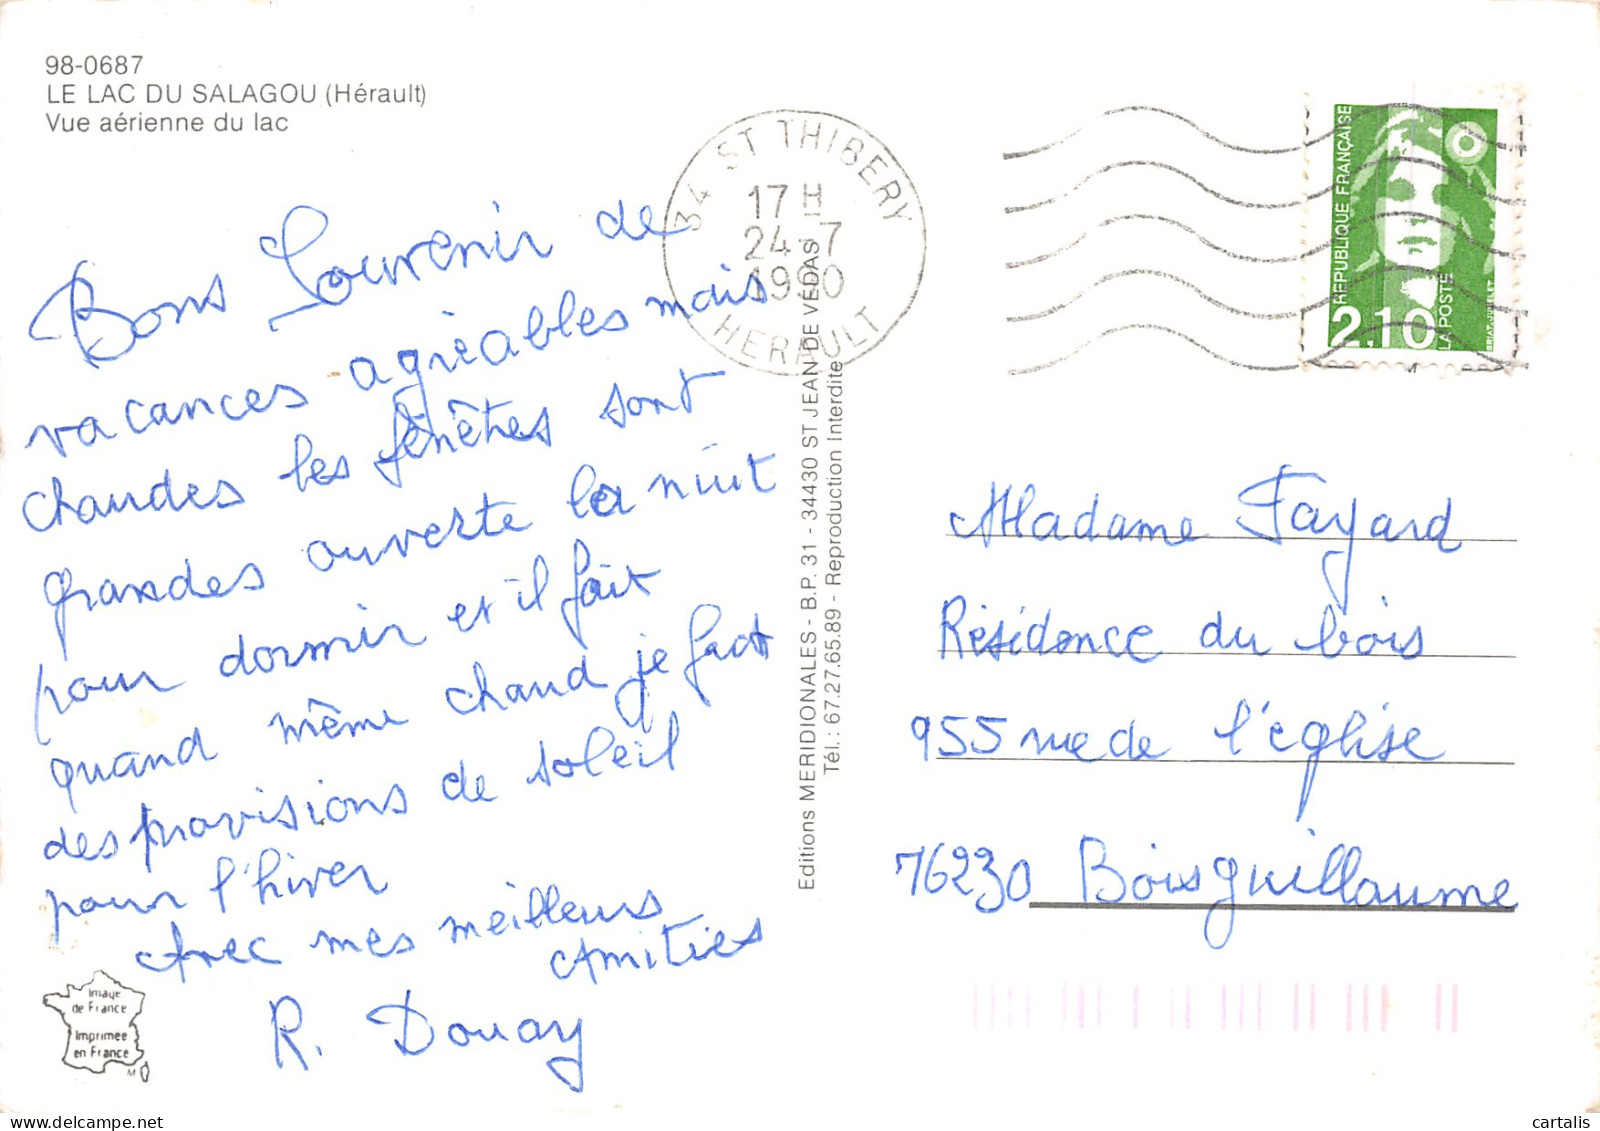 98-0687
LE LAC DU SALAGOU (Hérault)
Vue aérienne du lac
Bons Souvenir de
vacances agréables mais
chaudes les fenêtres sont
grandes ouverte la nuit
pour dormir et il fait
quand même chaud je fact
des provisions de soleil
pour l'hiver
Avec mes meilleurs
Amitiés
R. Douay
Image
de France
Imprimée
en France
34 ST THIBERY
17 H
24-7
1990
HERAULT
Editions MERIDIONALES - B.P. 31 - 34430 ST JEAN DE VÉDAS
Tél.: 67.27.65.89 - Reproduction Interdite
REPUBLIQUE FRANÇAISE
2.10
LA POSTE
BRIAT-JUMELET
Madame Fayard
Résidence du bois
955 rue de l'église
76230 Boisguillaume
cartalis